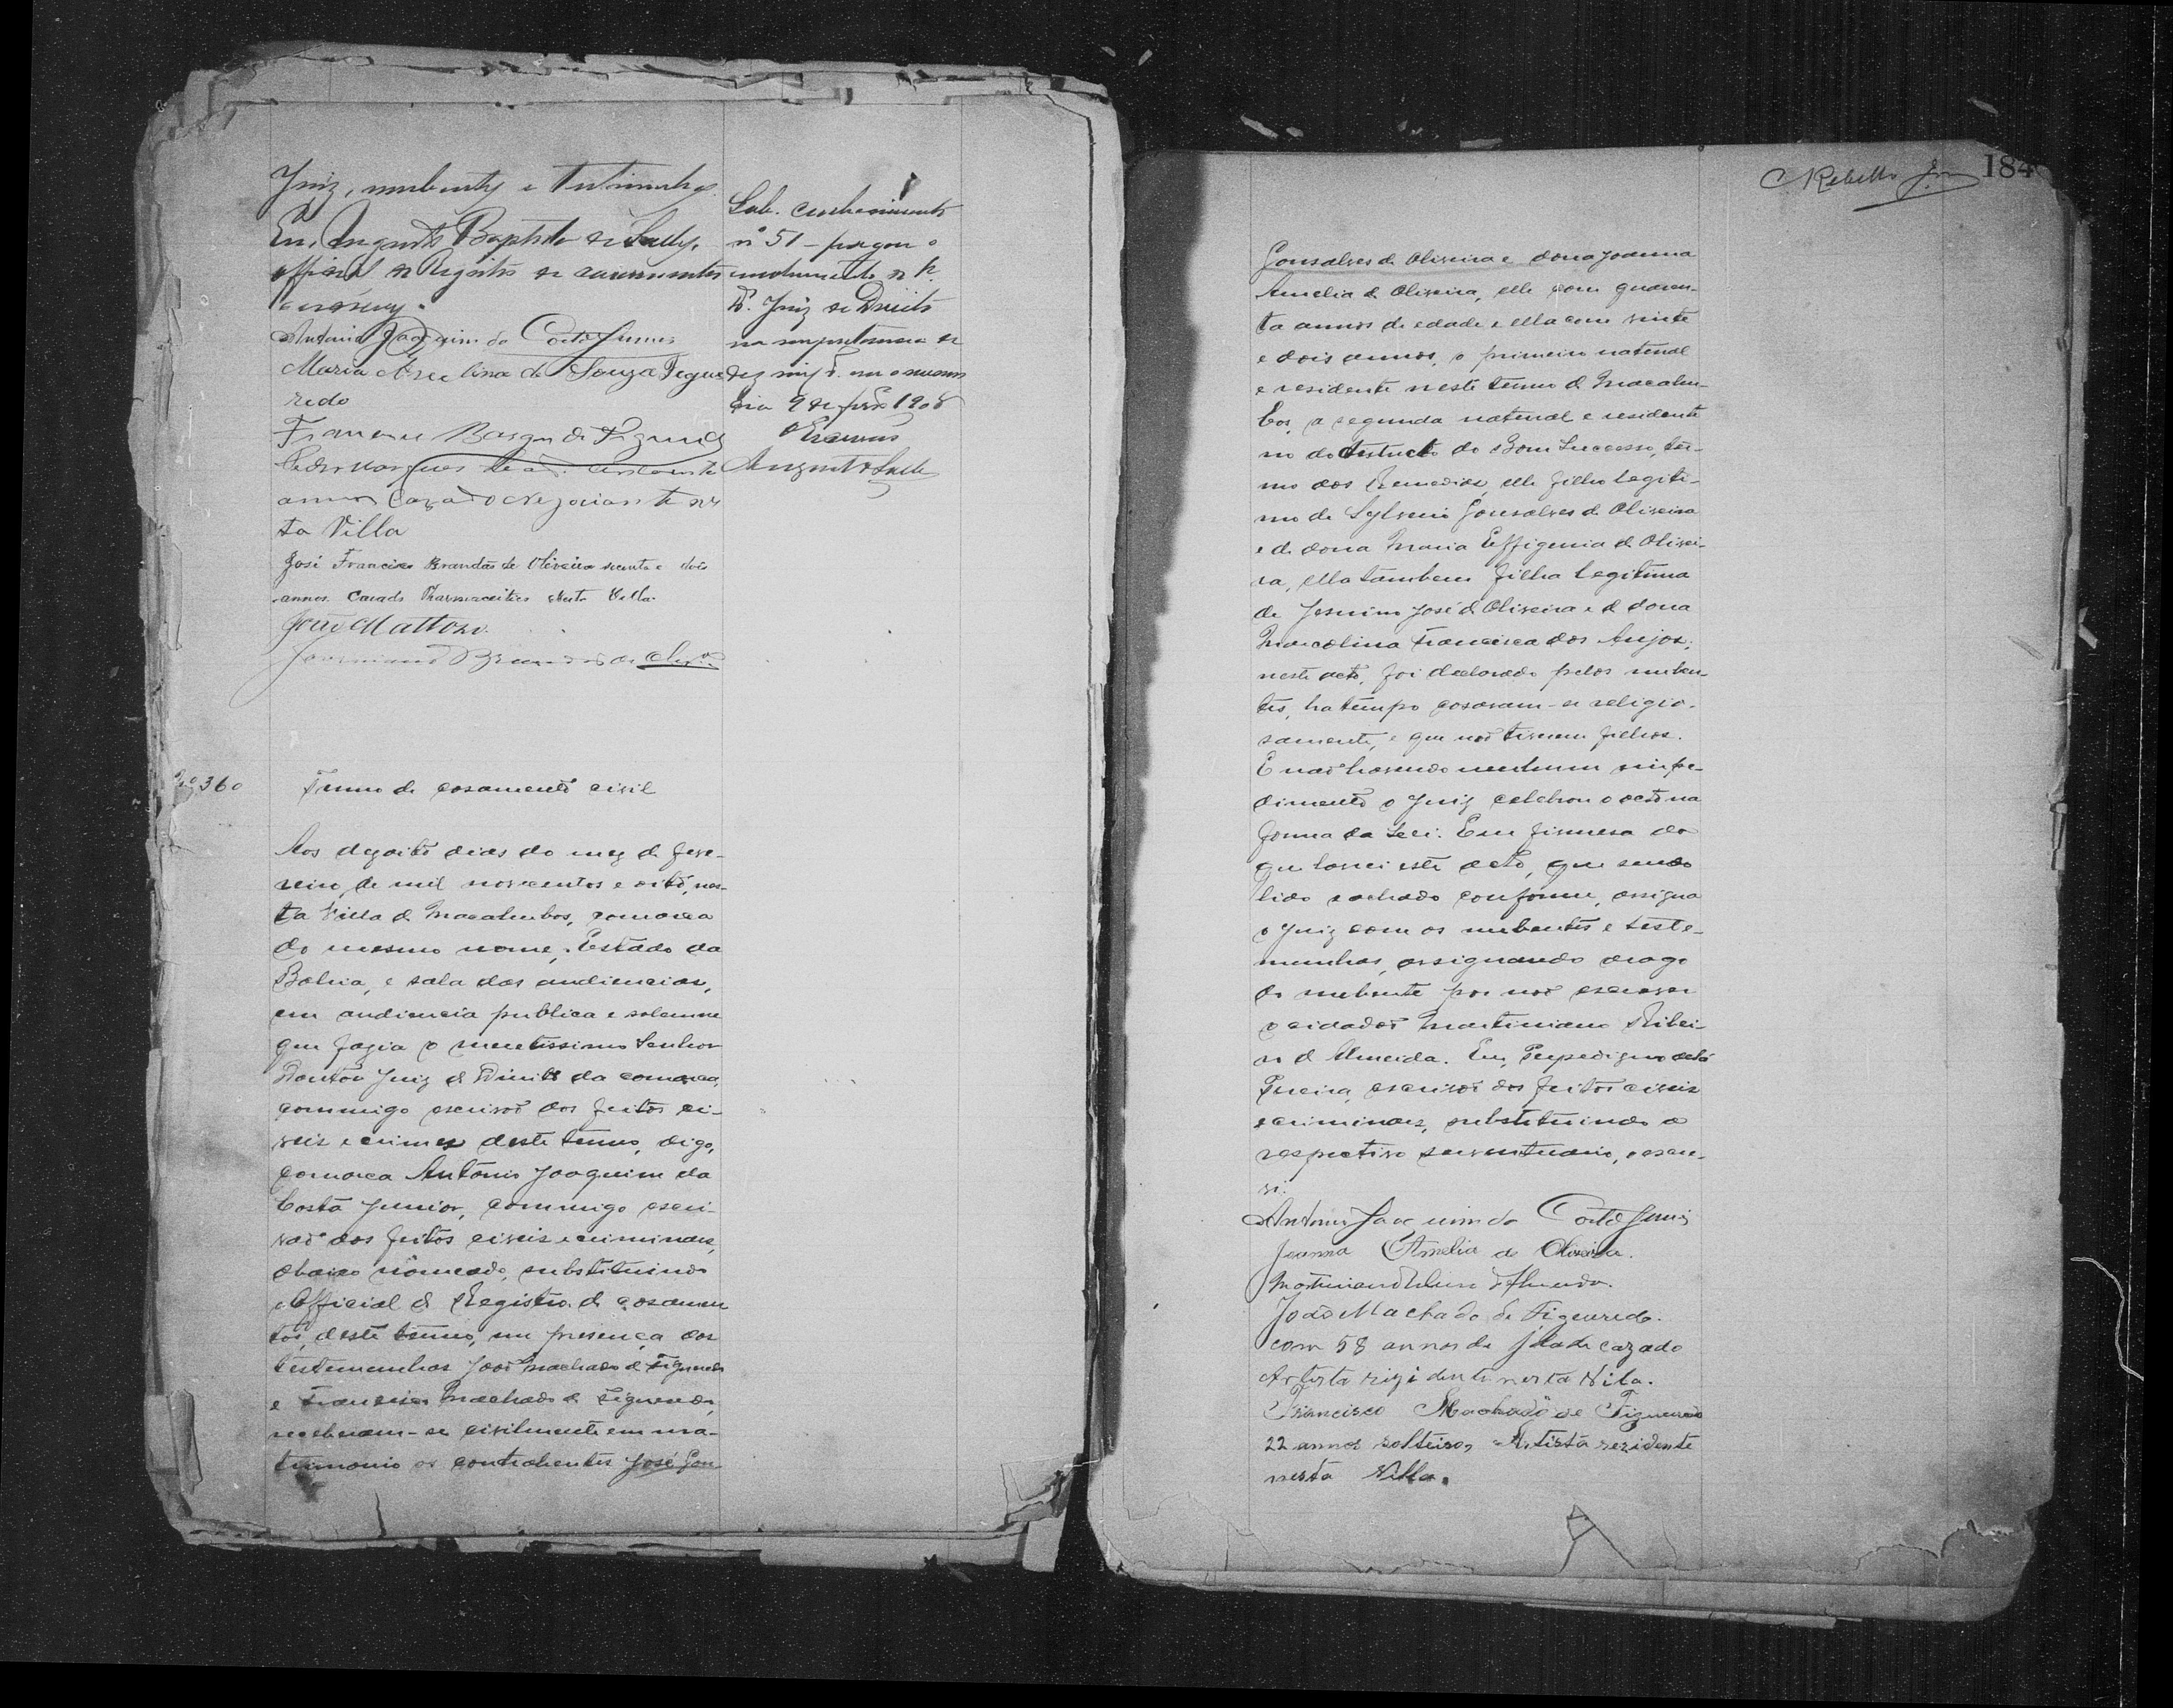 Juiz, nubentes e testimunhas.
Eu, Augusto Baptista de Sally,
official do Registro de casamentos
escrevy.
Antonio Joaquim da Costa Junior
Maria de Souza Figue
redo
Francisco Borges de Figueredo
annos Cazado Negociante nes
ta Villa
José Francisco Brandão de Oliveira secenta e dois
annos. Casado Pharmaceutico nesta Villa.
João Mattoso.
Sab. conhecimento
nº 51 - pagou o
emolumento do
Dr. Juiz de Direito
na importancia de
dez mil rs. em o mesmo
dia 9 de 1908
O Escrivão
Augusto Sally
Nº 360
Termo de casamento civil
Aos dezoito dias do mez de feve-
reiro de mil novecentos e oito, nes-
ta Villa de Macahubas, comarca
do mesmo nome, Estado da
Bahia, e sala das audiencias,
em audiencia publica e solemne
que fazia o meretissimo Senhor
Doutor Juiz de Direito da comarca,
commigo escrivão dos feitos ci-
veis e crimes deste termo, digo,
comarca Antonio Joaquim da
Costa Junior, commigo escri-
vão dos feitos civeis e criminaes,
abaixo nomeado, substituindo
o Official do Registro de casamen
tos, deste termo, em presença das
testemunhas João Machado de Figueredo
e Francisco Machado de Figueredo,
receberam-se civilmente em ma-
trimonio os contrahentes José Gon
184
Rebello Jor
Gonsalves de Oliveira e dona Joanna
Amelia de Oliveira, elle com quaren-
ta annos de edade e ella com vinte
e dois annos, o primeiro natural
e residente neste termo de Macahu-
bas, a segunda natural e residente
no districto do Bom Successo, ter-
mo dos Remedios, elle filho legiti-
mo de Sylverio Gonsalves de Oliveira
e de dona Maria Effigenia de Olivei-
ra, ella tambem filha legitima
de Jesuino José de Oliveira e de dona
Marcolina Francisca dos Anjos;
neste acto, foi declarado pelos nuben-
tes, ha tempo casaram-se religio-
samente, e que não tiveram filhos.
E não havendo nenhum impe-
dimento o Juiz celebrou o acto na
forma da Lei. Em firmesa do
que lavrei este acto, que sendo
lido e achado conforme, assigna
o Juiz com os nubentes e teste-
munhas, assignando arogo
do nubente por não escrever
o cidadão Martiniano Ribei-
ro de Almeida. Eu,
Pereira, escrivão dos feitos civeis
e criminaes, substituindo o
respectivo serventuario, o escre-
vi.
Antonio Joaquim da Costa Junior
Joanna Amelia de Oliveira.
Martiniano Ribeiro d'Almeida.
João Machado de Figueredo.
com 58 annos de idade cazado
Artista rizidente nesta Vila.
Francisco Machado de Figueredo
22 annos solteiro, Artista rezidente
nesta Villa.